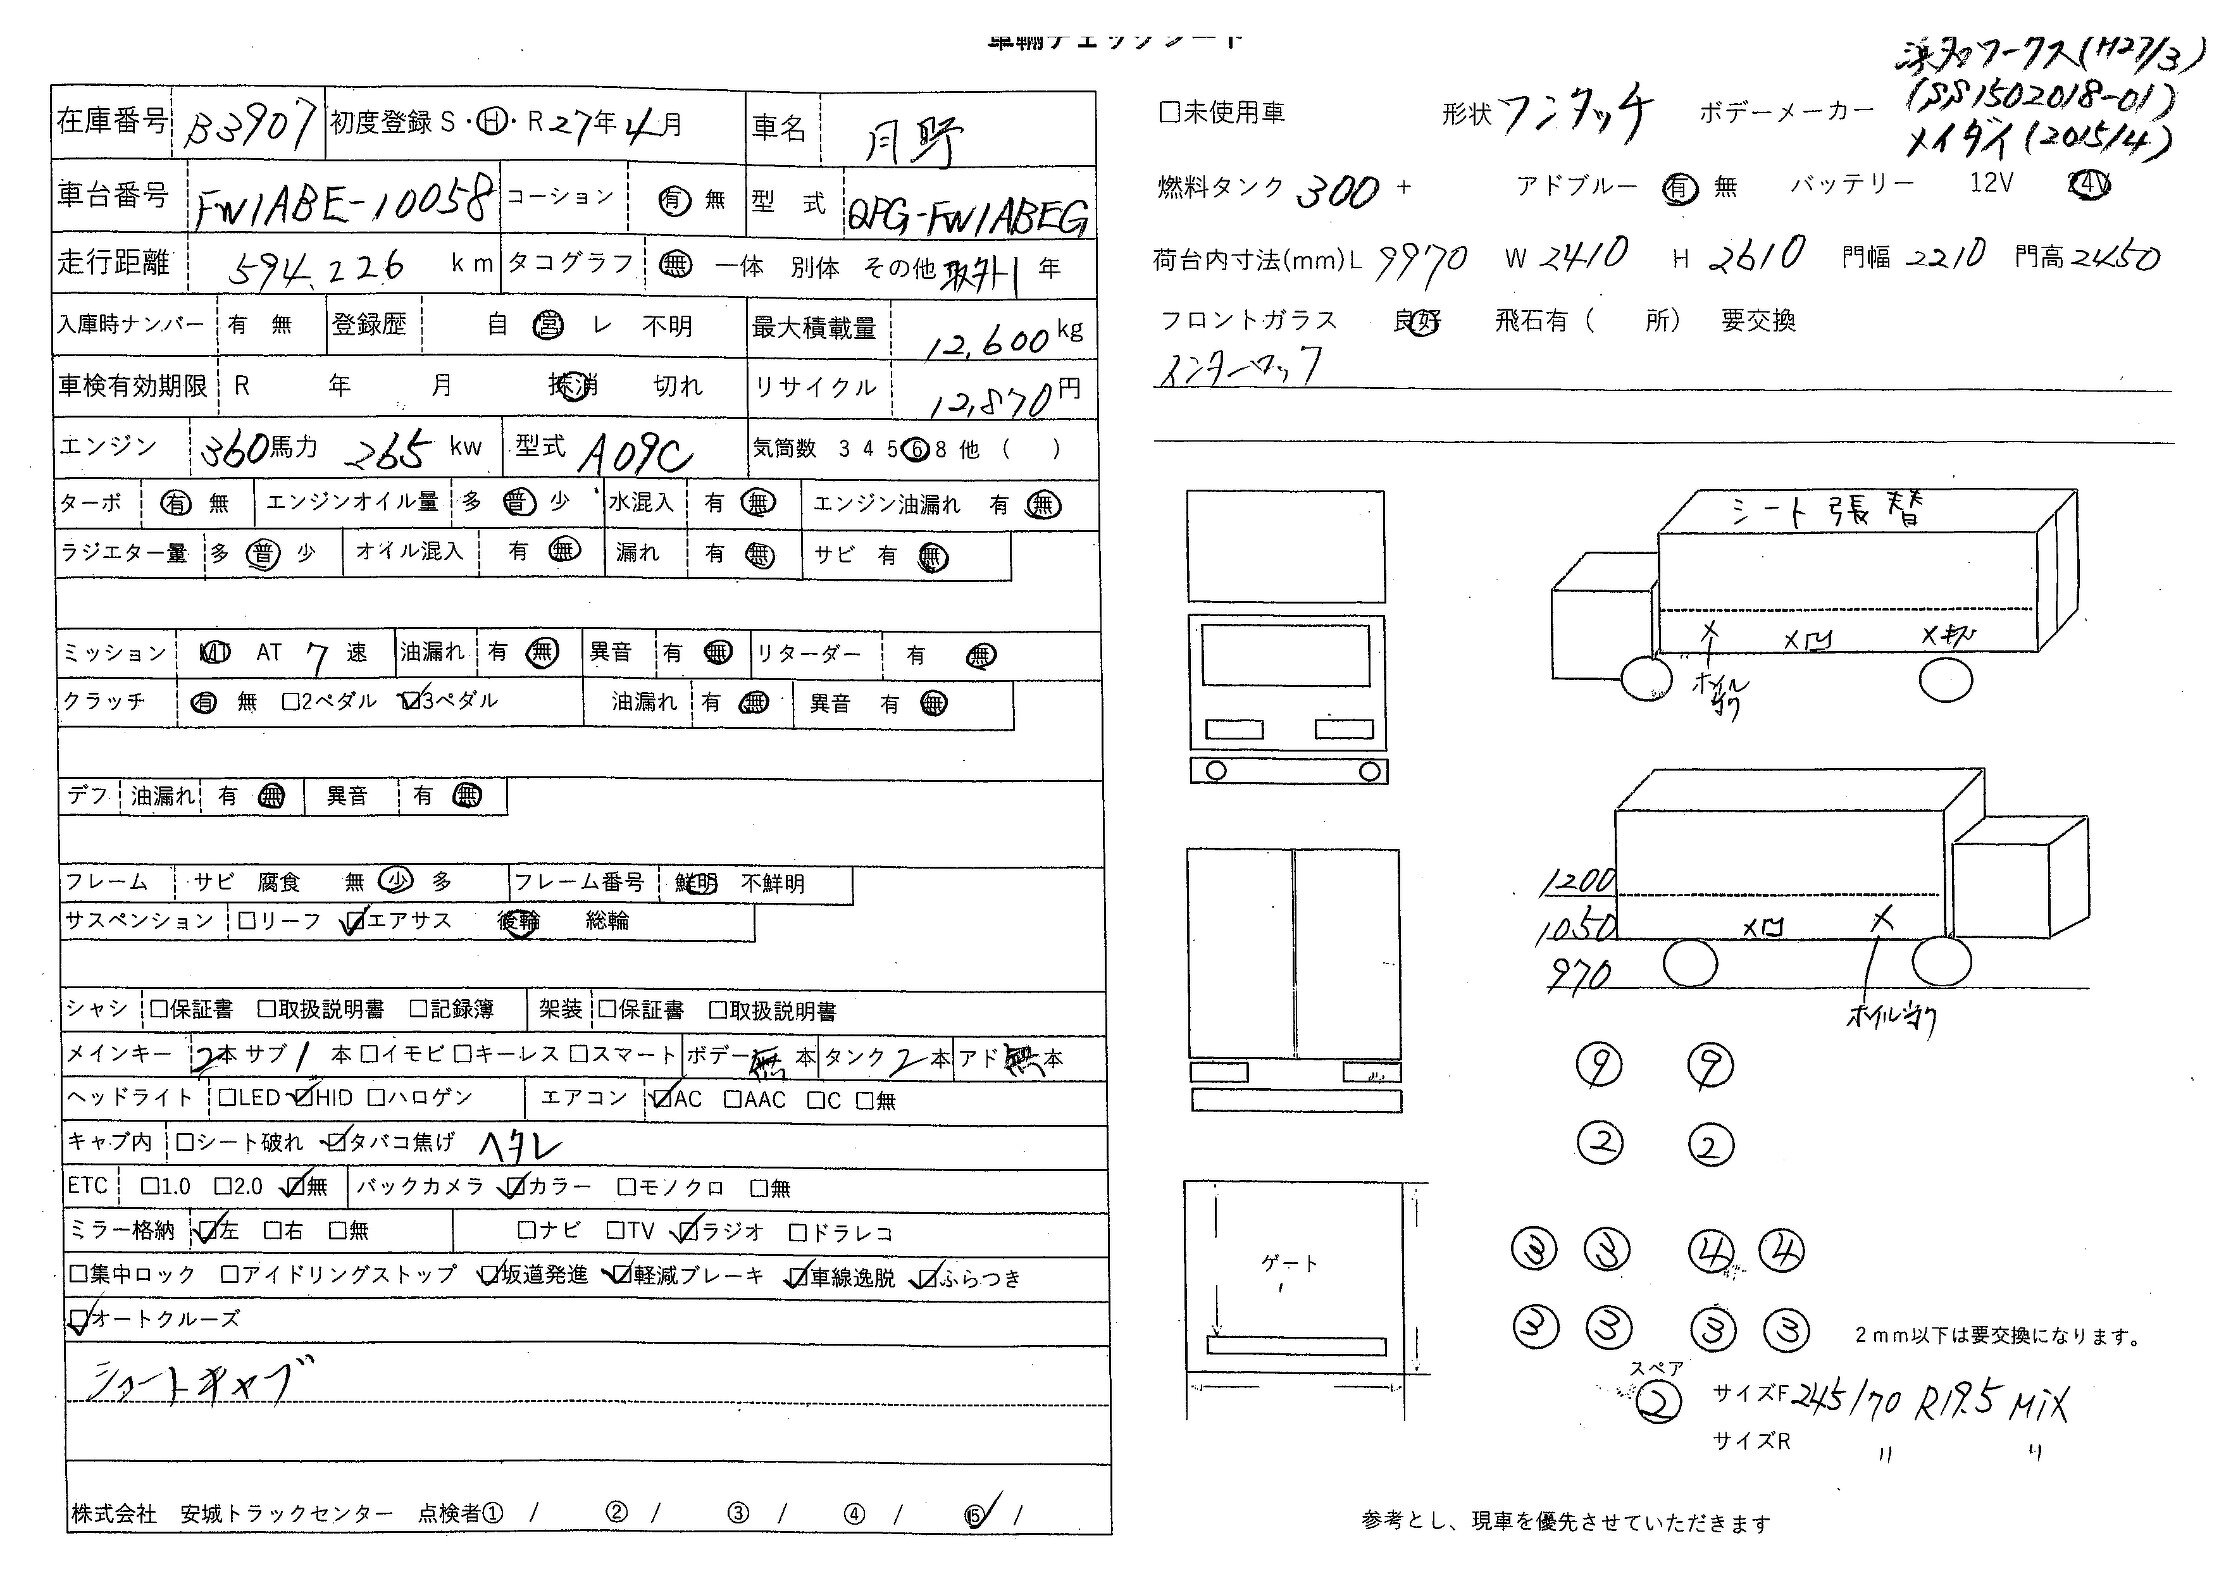 車輌チェックシート
浜名ワークス(H27/3)
(SS1502018-01)
メイダイ(2015/4)
在庫番号 B3907 初度登録 S・Ⓗ・R 27年 4月 車名 日野
□未使用車 形状 ワンタッチ ボデーメーカー
車台番号 FW1ABE-10058 コーション 有 無 型 式 QPG-FW1ABEG
燃料タンク 300 + アドブルー 有 無 バッテリー 12V 24V
走行距離 594,226 km タコグラフ 無 一体 別体 その他 取外し 年
荷台内寸法(mm)L 9970 W 2410 H 2610 門幅 2210 門高 2450
入庫時ナンバー 有 無 登録歴 自 営 レ 不明 最大積載量 12,600 kg
フロントガラス 良好 飛石有( 所) 要交換
インターロック
車検有効期限 R 年 月 抹消 切れ リサイクル 12,870 円
エンジン 360馬力 265 kw 型式 A09C 気筒数 3 4 5 6 8 他 ( )
ターボ 有 無 エンジンオイル量 多 普 少 水混入 有 無 エンジン油漏れ 有 無
ラジエター量 多 普 少 オイル混入 有 無 漏れ 有 無 サビ 有 無
ミッション MT AT 7 速 油漏れ 有 無 異音 有 無 リターダー 有 無
クラッチ 有 無 □2ペダル ☑3ペダル 油漏れ 有 無 異音 有 無
デフ 油漏れ 有 無 異音 有 無
フレーム サビ 腐食 無 少 多 フレーム番号 鮮明 不鮮明
サスペンション □リーフ ☑エアサス 後輪 総輪
シャシ □保証書 □取扱説明書 □記録簿 架装 □保証書 □取扱説明書
メインキー 2本 サブ 1 本 □イモビ □キーレス □スマート ボデー 無 本 タンク 2 本 アド 無 本
ヘッドライト □LED ☑HID □ハロゲン エアコン ☑AC □AAC □C □無
キャブ内 □シート破れ ☑タバコ焦げ ヘタレ
ETC □1.0 □2.0 ☑無 バックカメラ ☑カラー □モノクロ □無
ミラー格納 ☑左 □右 □無 □ナビ □TV ☑ラジオ □ドラレコ
□集中ロック □アイドリングストップ ☑坂道発進 ☑軽減ブレーキ ☑車線逸脱 ☑ふらつき
☑オートクルーズ
ショートキャブ
株式会社 安城トラックセンター 点検者① / ② / ③ / ④ / ⑤ /
シート張替
X X凹 Xキズ
ホイル当り
1200
1050 X凹 X
970
ホイル当り
⑨ ⑨
② ②
③ ③ ④ ④
③ ③ ③ ③
ゲート
2mm以下は要交換になります。
スペア
② サイズF 245/70 R19.5 MiX
サイズR 〃 〃
参考とし、現車を優先させていただきます